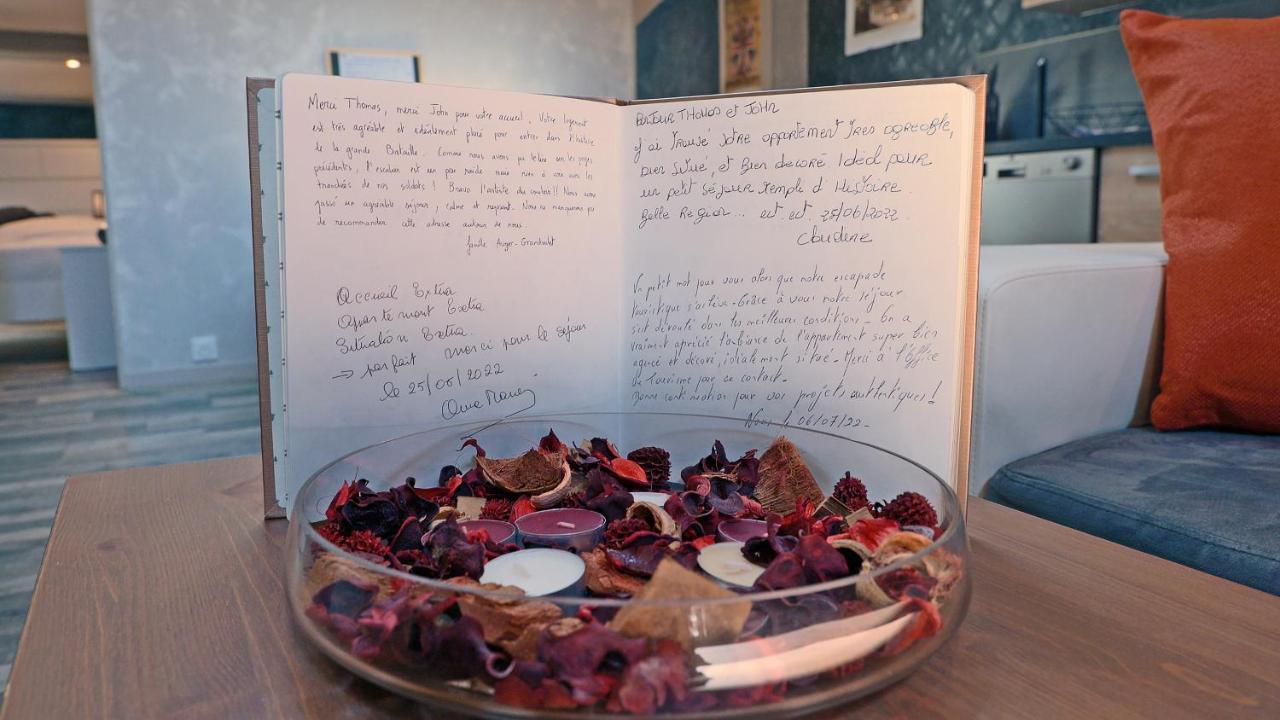 Merci Thomas, merci John pour votre accueil. Votre logement
est très agréable et idéalement placé pour entrer dans l'histoire
de la grande Bataille. Comme nous avons pu le lire sur les pages
précédentes, l'escalier est un peu raide mais rien à voir avec les
tranchées de nos soldats ! Bravo l'artiste du couloir !! Nous avons
passé un agréable séjour, calme et reposant. Nous ne manquerons pas
de recommander cette adresse autour de nous.
famille Auger-
Accueil Extra
Appartement Extra
Situation Extra
→ parfait merci pour le séjour
le 25/06/2022
BONJOUR THOMAS et JOHN
J'ai trouvé votre appartement très agréable,
bien situé, et bien décoré. Idéal pour
un petit séjour rempli d'Histoire.
Belle Région... est est. 25/06/2022
Claudine
Un petit mot pour vous alors que notre escapade
touristique s'achève. Grâce à vous notre séjour
s'est déroulé dans les meilleures conditions. On a
vraiment apprécié l'ambiance de l'appartement super bien
agencé et décoré, idéalement situé. Merci à l'Office
de Tourisme pour ce contact.
Bonne continuation pour vos projets authentiques !
le 06/07/22.